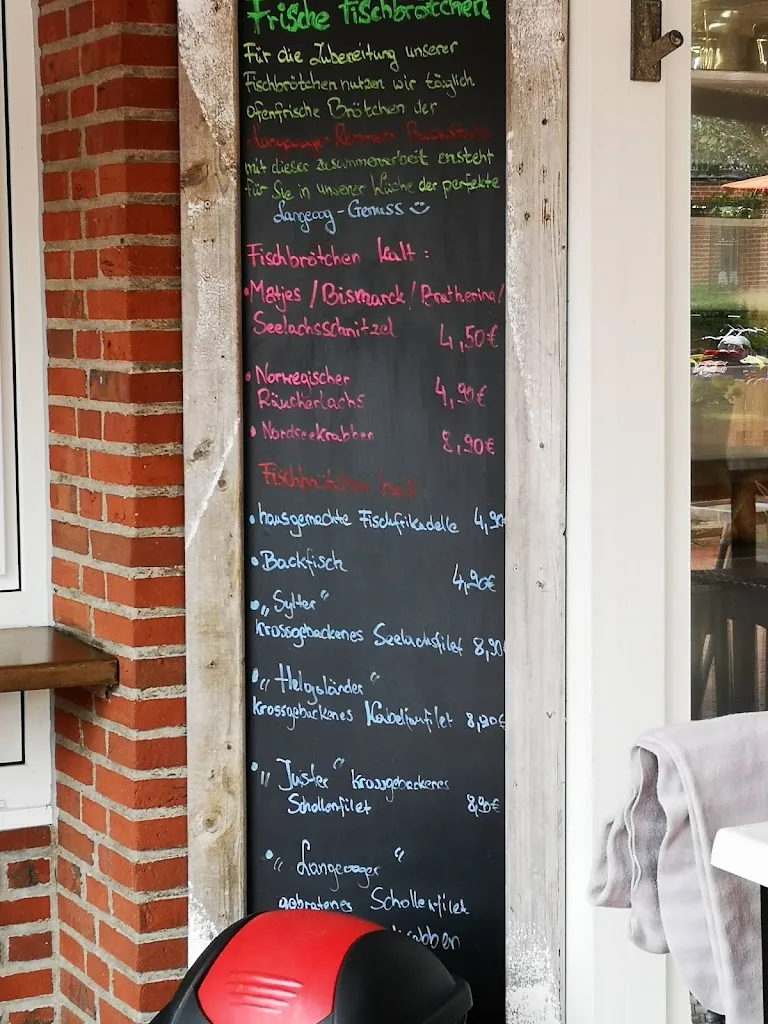 Frische Fischbrötchen
Für die Zubereitung unserer
Fischbrötchen nutzen wir täglich
ofenfrische Brötchen der
mit dieser zusammenarbeit ensteht
für Sie in unserer Küche der perfekte
Langeoog-Genuss
Fischbrötchen kalt:
• Matjes / Bismarck / Bratherin /
Seelachsschnitzel 4,50€
• Norwegischer
Räucherlachs 4,90€
• Nordseekrabben 8,90€
Fischbrötchen heiß:
• hausgemachte Fischfrikadelle 4,90
• Backfisch 4,90€
• „Sylter"
krossgebackenes Seelachsfilet 8,90
• „Helgoländer"
krossgebackenes Kabeljaufilet 8,90€
• „Juster" krossgebackenes
Schollenfilet 8,90€
• „Langeooger"
gebratenes Schollenfilet